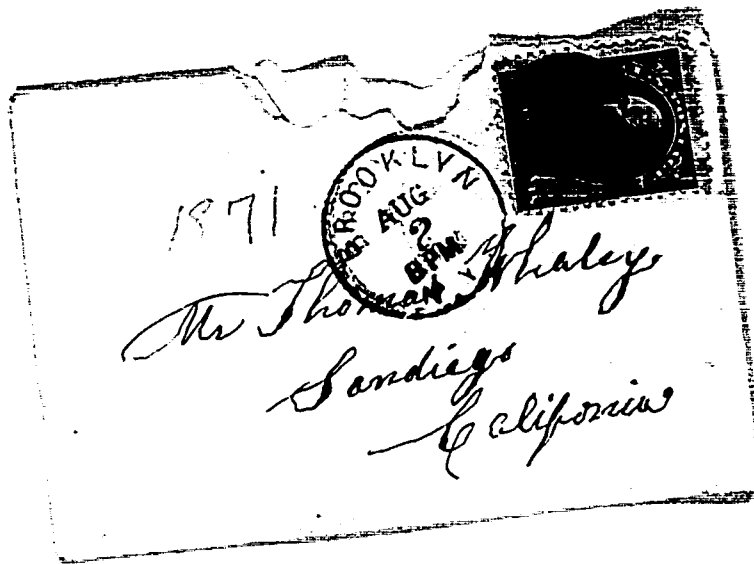 BROOKLYN
AUG
2
8PM
N Y
1871
Mr Thomas Whaley
Sandiego
California